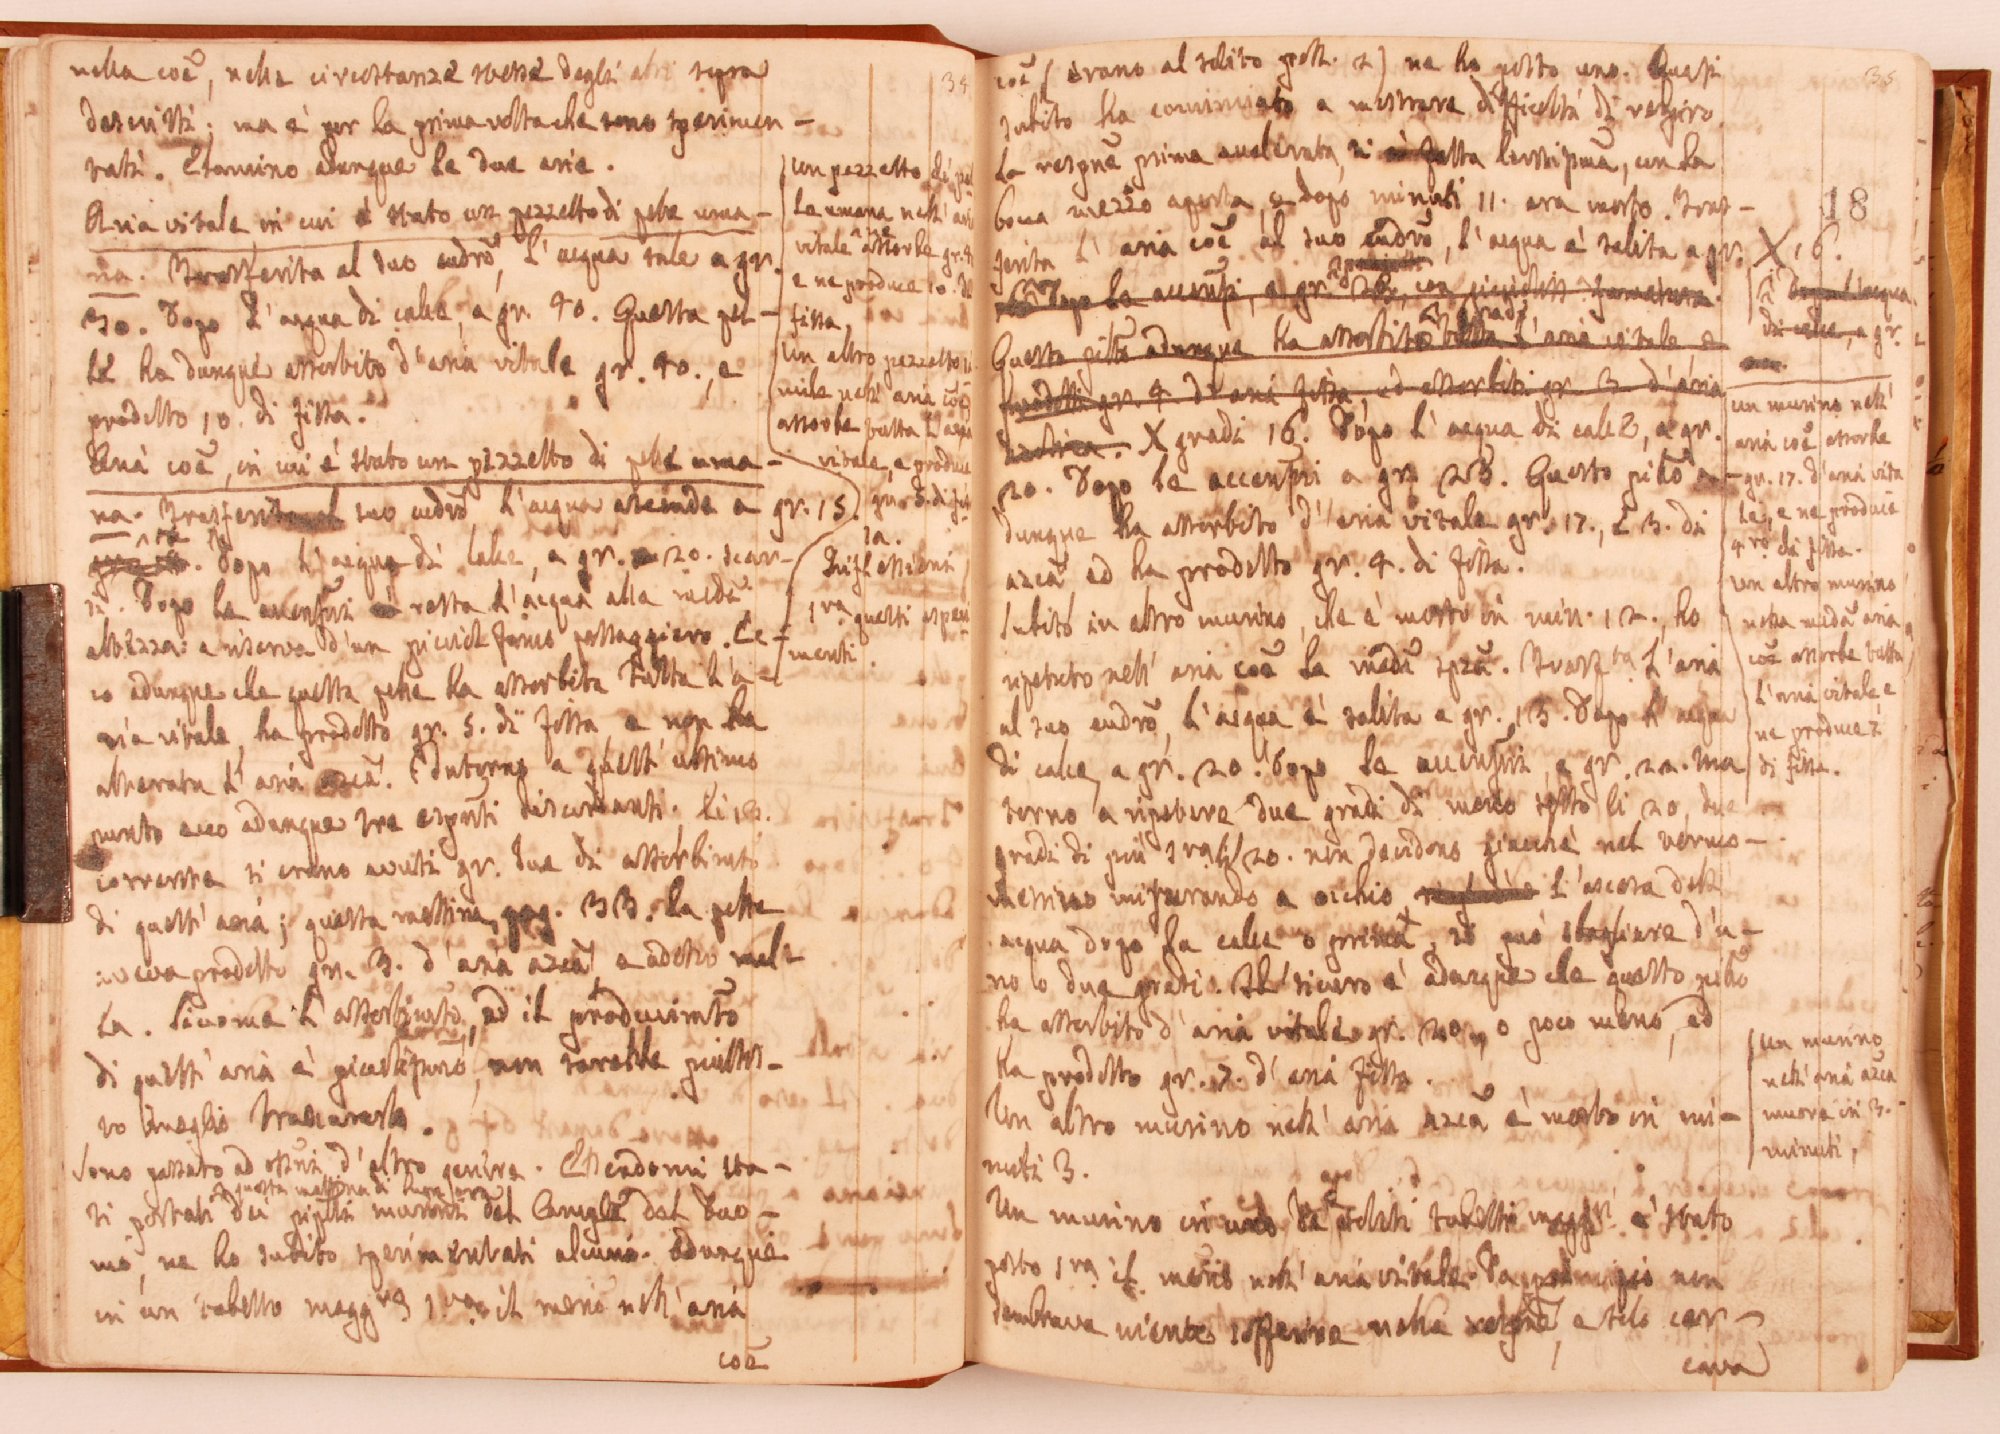 34
nella coẽ, nelle circostanze stesse degli altri sopra
descritti; ma è per la prima volta che sono sperimen-
tati. Esamino adunque le due arie.
Aria vitale in cui è stato un pezzetto di pelle uma-
na. Trasferita al suo eudrõ, l'acqua sale a gr.
30. Dopo l'acqua di calce, a gr. 40. Questa pel-
le ha dunque assorbito d'aria vitale gr. 40., e
prodotto 10. di fissa.
Aria coẽ, in cui è stato un pezzetto di pelle uma-
na. Trasferita al suo eudrõ l'acqua ascende a gr. 15.
Dopo l'acqua di calce, a gr. 20. scar-
si. Dopo le accensñi resta l'acqua alla medã
altezza: a riserva d'un piccicol fumo passaggiero. Ec-
co adunque che questa pelle ha assorbita tutta l'a-
ria vitale, ha prodotto gr. 5. di fissa, e non ha
alterata l'aria azcã. Intorno a quest' ultimo
punto ecco adunque tre esperti discordanti. Li 18.
corrente si erano avuti gr. due di assorbimto
di quest' aria; questa mattina, pag. 33. la pelle
aveva prodotto gr. 3. d'aria azcã e adesso nul-
la. Siccome l'assorbimto, ed il producimto
di quest' aria è piccolissimo, non sarebbe piuttos-
to meglio trascurarlo.
Sono passato ad esseri d'altro genere. Essendomi sta-
questa mattina di buon'ora
ti portati dei piccoli murini dal Canegle dal Duo-
mo, ne ho subito sperimentati alcuni. Adunque
in un tubetto magg.re 1.va il merio nell' aria
coẽ
Un pezzetto di pel
le umana nell' aria
vitale assorbe gr. 4
e ne produce 10. di
fissa,
Un altro pezzetto si
mile nell' aria coẽ,
assorbe tutta l'aria
vitale, e produce
gr. 5. di fis
sa.
Riflessioni
1.ra questi esperi
menti
35
18
coẽ (erano al solito gradi. 2) ne ho posto uno. Questi
subito ha cominciato a mostrare difficoltà di respiro.
La respgnẽ prima accelerata, si è fatta lentissima, con la
bocca mezzo aperta, e dopo minuti 11. era morto. Tras-
ferita l'aria coẽ al suo eudrõ, l'acqua è salita a gr. X 16.
Dopo le accensñi, a gr. 23, con piccoliss. fumatura.
Questo pitto adunque ha assorbito tutta l'aria vitale, e
prodotti gr. 4 d'aria fissa, ed assorbiti gr. 3. d'aria
X gradi 16. Dopo l'acqua di calce, a gr.
20. Dopo le accensñi a gr. 23. Questo pittõ a-
dunque ha assorbito d'aria vitale gr. 17., e 3. di
azcã ed ha prodotto gr. 4. di fissa.
Subito in altro murino, che è morto in min. 12., ho
ripetuto nell' aria coẽ la medã spzã. Trasf.ta l'aria
al suo eudrõ, l'acqua è salita a gr. 13. Dopo l'acqua
di calce, a gr. 20. Dopo le accensñi, a gr. 22. Ma
torno a ripetere due gradi di meno sotto li 20, due
gradi di più sopra li 20. non decidono giacchè nel vermo-
metrino misurando a occhio l'ascesa dell'
acqua dopo la calce o prima, si può sbagliare d'u-
no o due gradi. Il sicuro è adunque che questo pittõ
ha assorbito d'aria vitale gr. 20, o poco meno, ed
ha prodotto gr. 7. d'aria fissa.
Un altro murino nell' aria azcã è morto in mi-
nuti 3.
Un murino in uno de' soliti tubetti magg.ri è stato
posto 1.ra il merio nell' aria vitale. Da principio non
sembrava niente sofferire nella respgnẽ, e solo cer-
cava
Dopo l'acqua
di calce, a gr.
Un murino nell'
aria coẽ assorbe
gr. 17. d'aria vita
le, e ne produce
4.ro di fissa.
Un altro murino
nella medã aria
coẽ assorbe tutta
l'aria vitale e
ne produce 7
di fissa.
Un murino
nell' aria azcã
muore in 3.
minuti,